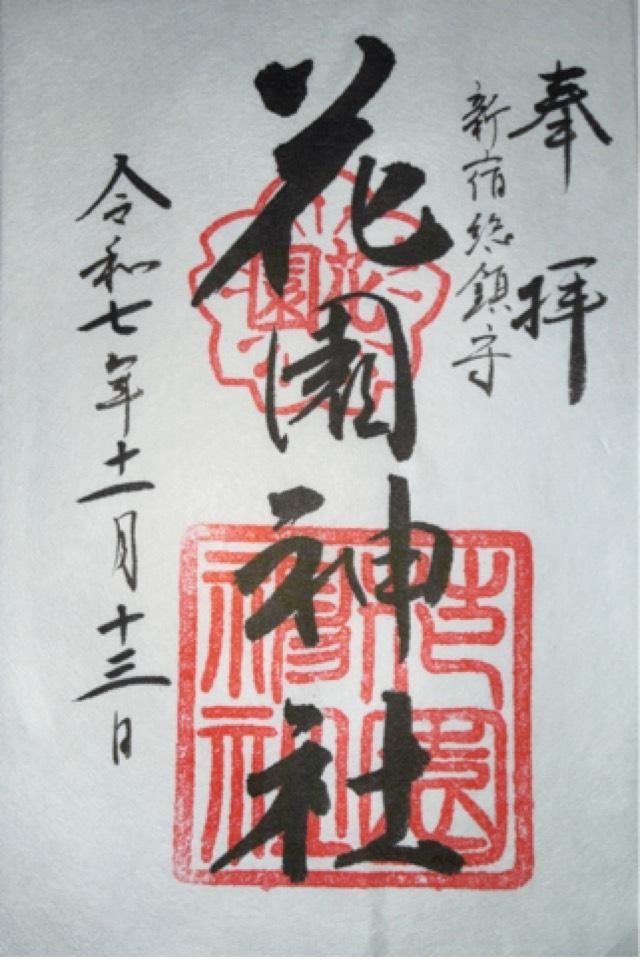 奉拝
新宿総鎮守
花園神社
令和七年十一月十三日
花園
花園神社